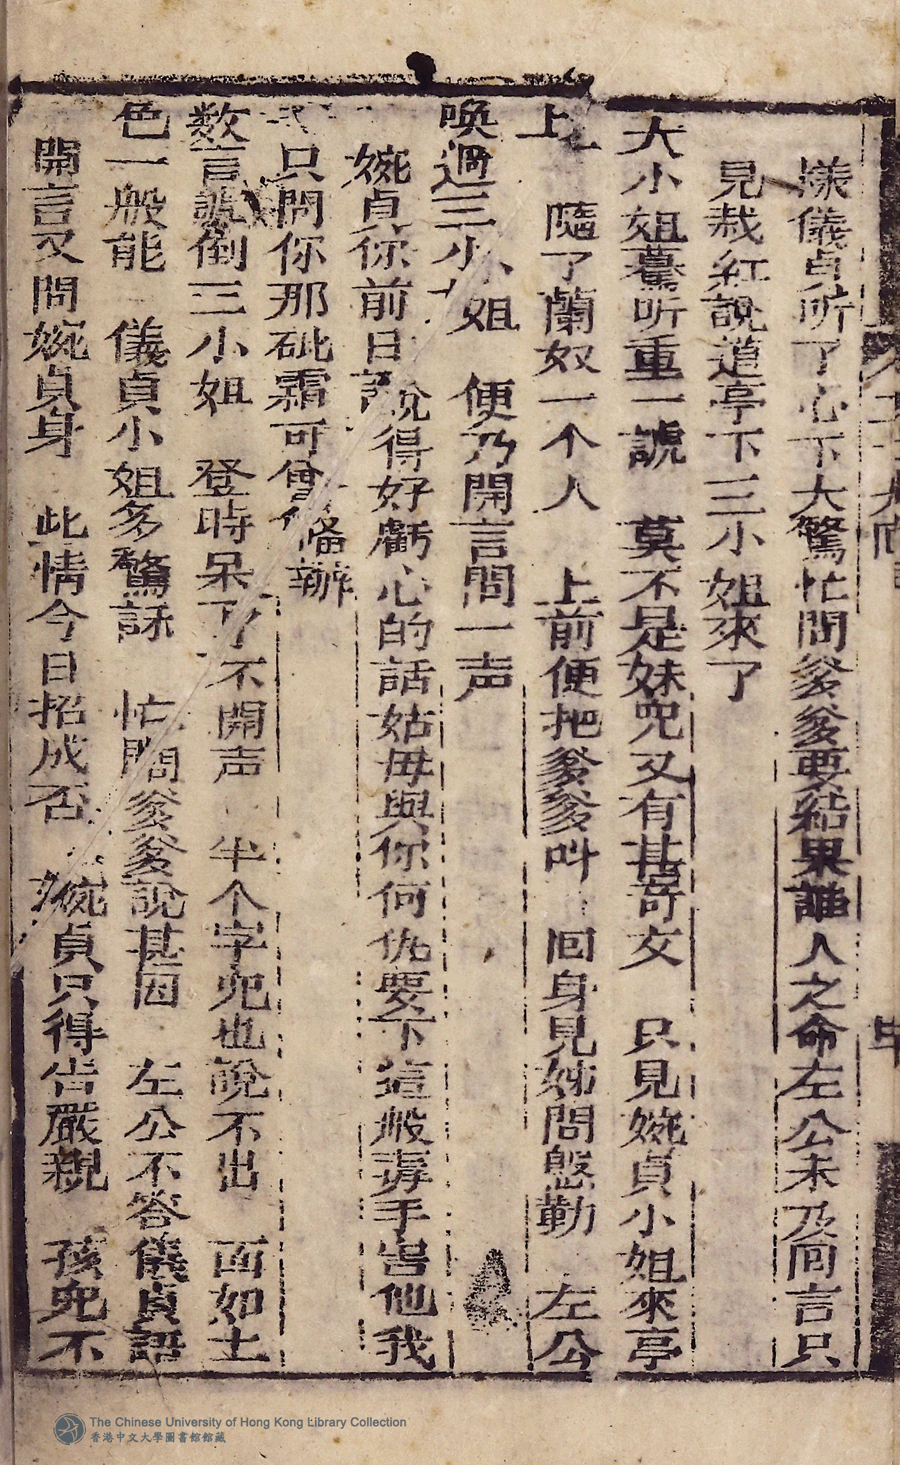 樣儀貞听了心下大驚忙問爹爹要結果誰人之命左公未及回言只
見裁紅說道亭下三小姐來了
大小姐驀听重一諕 莫不是妹兒又有甚奇文 只見婉貞小姐來亭
上 隨了蘭奴一个人 上前便把爹爹叫 回身見姊問慇勤 左公
喚過三小姐 便乃開言問一声
婉貞你前日說得好虧心的話姑毋與你何仇要下這般毒手害他我
只問你那砒霜可會修辦
数言諕倒三小姐 登時呆了不開声 半个字兒也說不出 面如土
色一般能 儀貞小姐多驚訝 忙問爹爹說甚因 左公不答儀貞語
開言又問婉貞身 此情今日招成否 婉貞只得告嚴親 孩兒不
The Chinese University of Hong Kong Library Collection
香港中文大學圖書館館藏